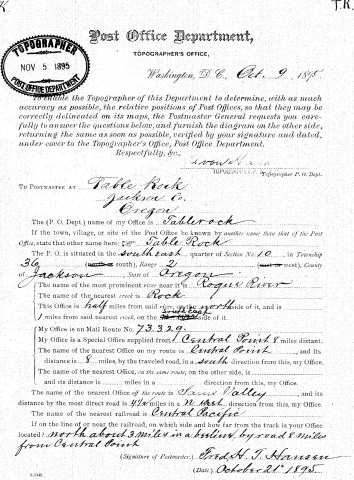 K T.R.
Post Office Department,
TOPOGRAPHER'S OFFICE,
TOPOGRAPHER
NOV 5 1895
POST OFFICE DEPARTMENT
Washington, D. C., Oct. 9, 1895
To enable the Topographer of this Department to determine, with as much
accuracy as possible, the relative positions of Post Offices, so that they may be
correctly delineated on its maps, the Postmaster General requests you care-
fully to answer the questions below, and furnish the diagram on the other side,
returning the same as soon as possible, verified by your signature and dated,
under cover to the Topographer's Office, Post Office Department.
Respectfully, &c.,
Topographer P. O. Dept.
TO POSTMASTER AT Table Rock
Jackson Co.
Oregon
The (P. O. Dept.) name of my Office is Tablerock
If the town, village, or site of the Post Office be known by another name than that of the Post
Office, state that other name here: Table Rock
The P. O. is situated in the southeast quarter of Section No. 10, in Township
36 (south), Range 2 (west), County
of Jackson, State of Oregon
The name of the most prominent river near it is Rogue River
The name of the nearest creek is Rock
This Office is half miles from said river, on the north side of it, and is
1 miles from said nearest creek, on the southeast side of it.
My Office is on Mail Route No. 73329.
My Office is a Special Office supplied from Central Point 8 miles distant.
The name of the nearest Office on my route is Central Point, and its
distance is 8 miles, by the traveled road, in a south direction from this, my Office.
The name of the nearest Office, on the same route, on the other side, is
and its distance is miles in a direction from this, my Office.
The name of the nearest Office off the route is Sams Valley, and its
distance by the most direct road is 4½ miles in a N west direction from this, my Office.
The name of the nearest railroad is Central Pacific
If on the line of or near the railroad, on which side and how far from the track is your Office
located? north about 3 miles in a beeline, by road 8 miles
from Central Point
(Signature of Postmaster.) Fred H. T. Hansen
(Date.) October 21st 1895